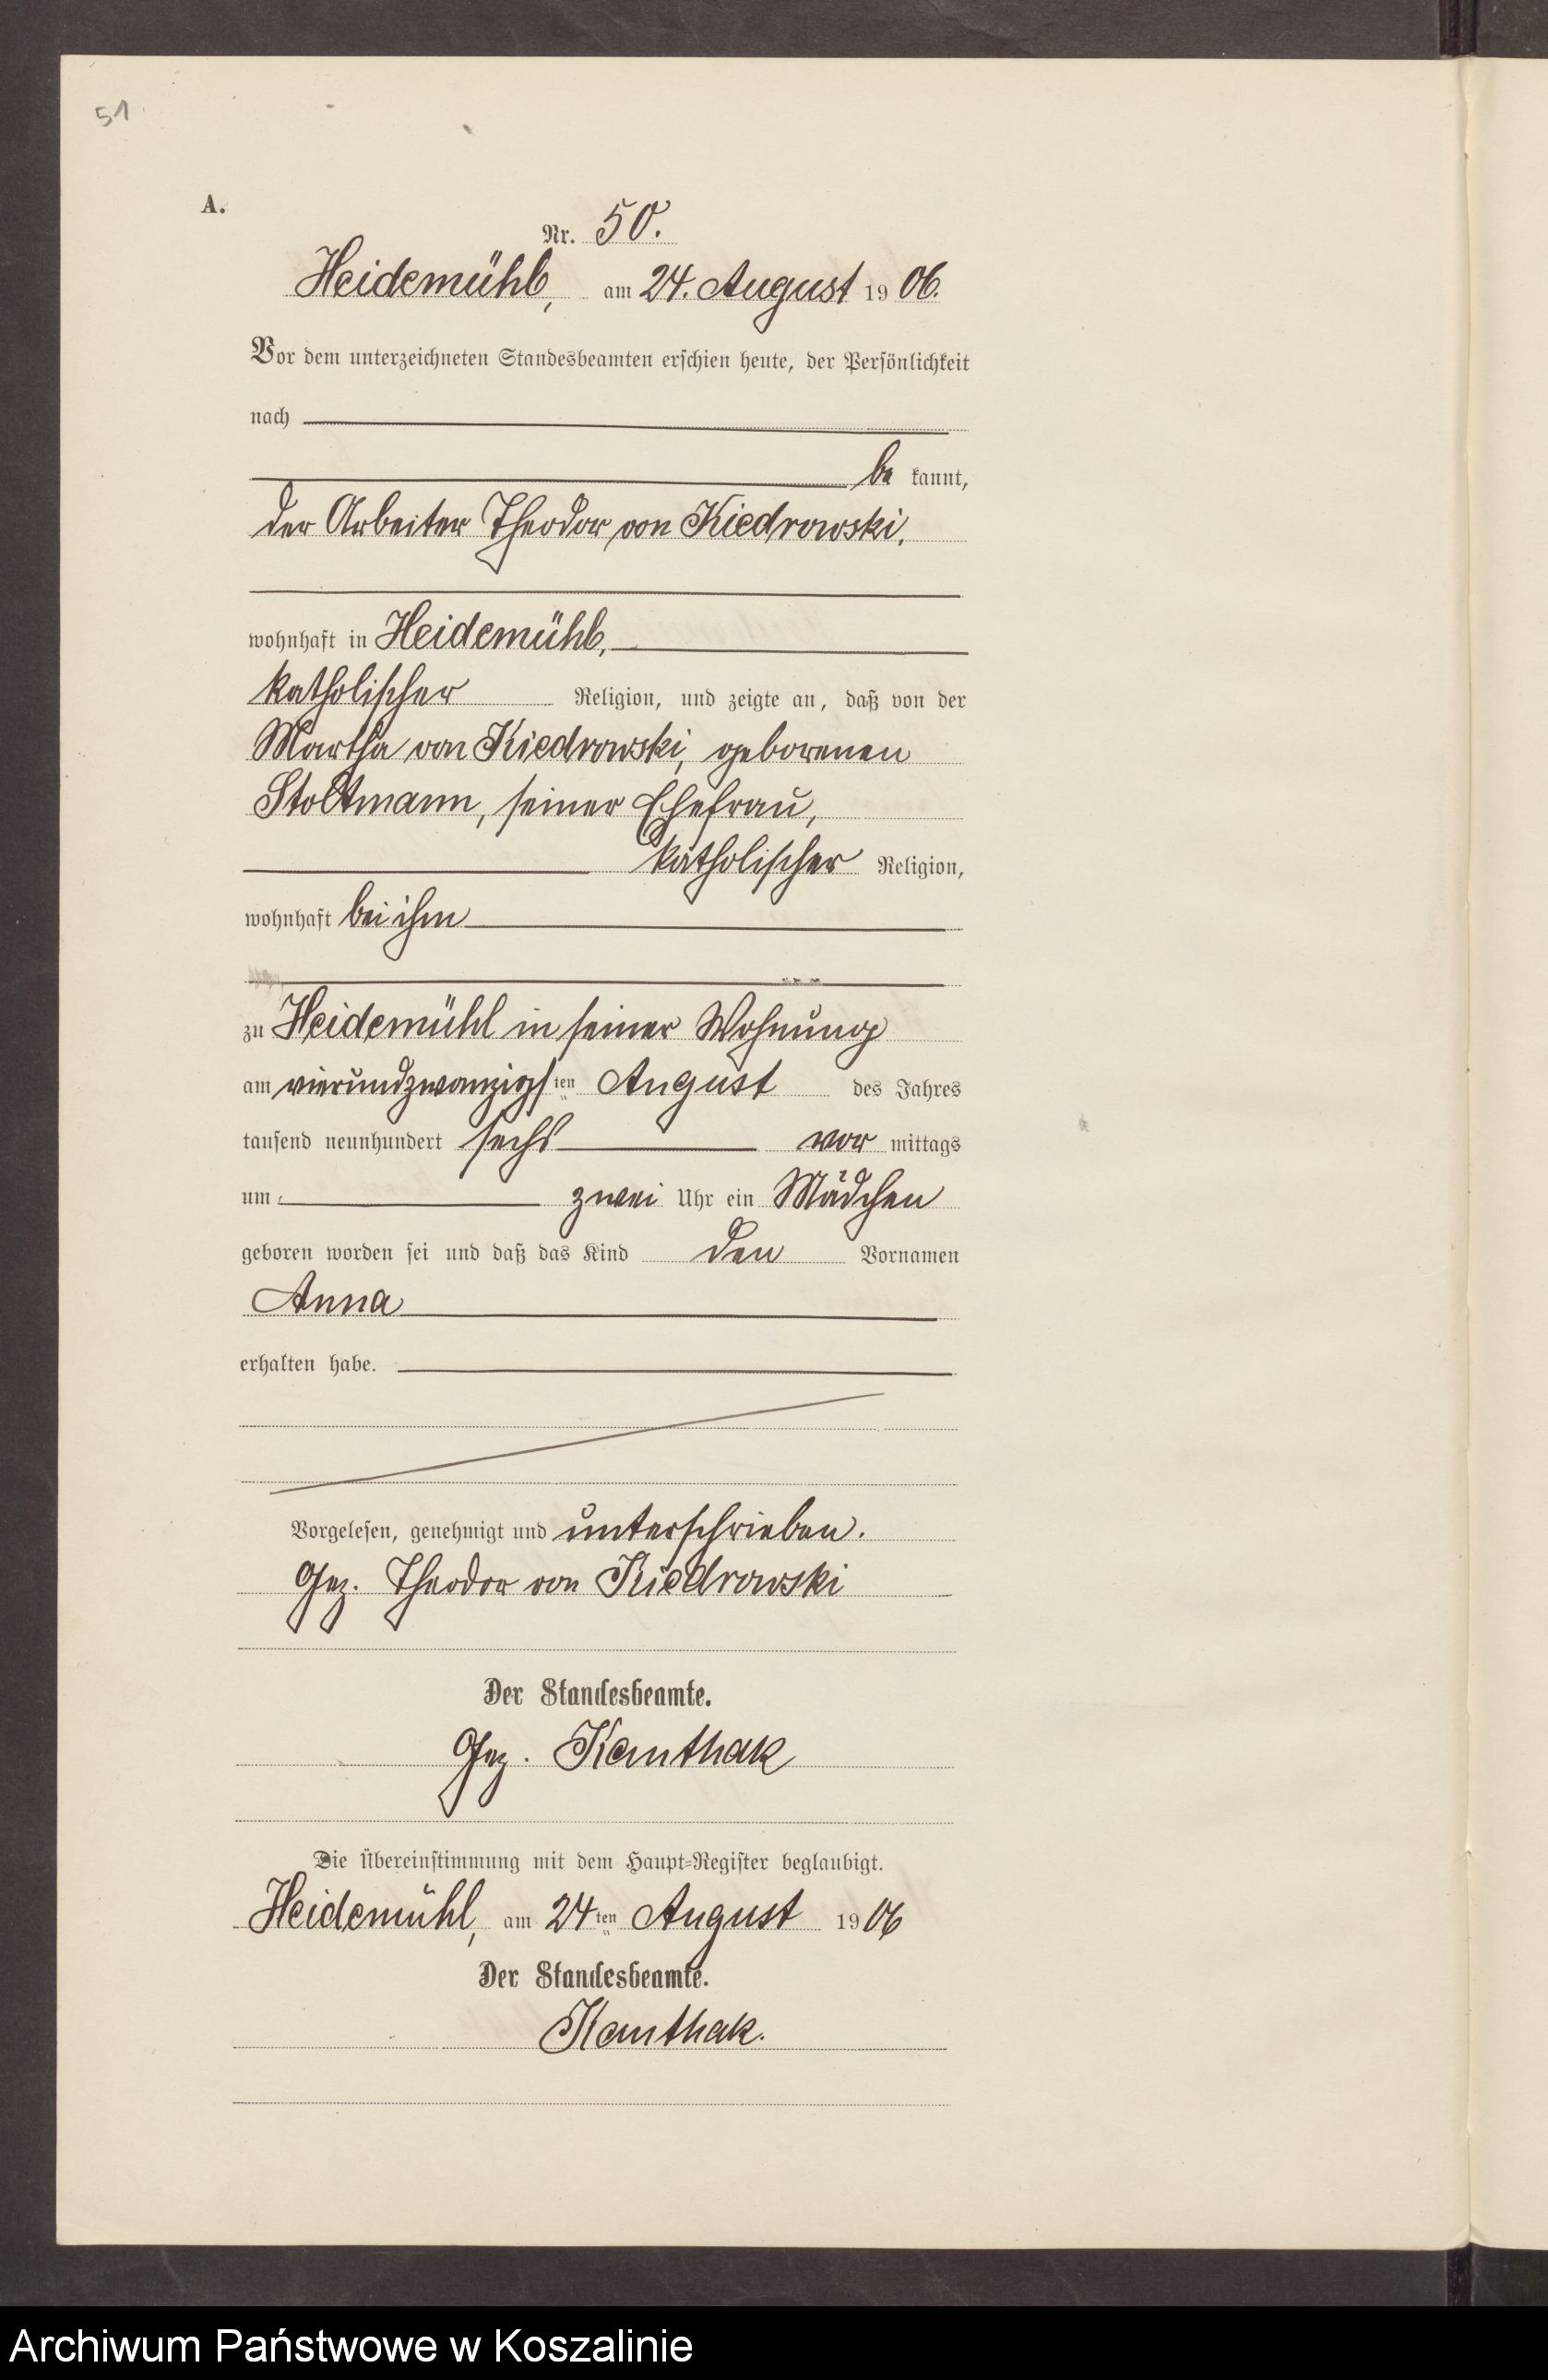 51
A.
Nr. 50.
Heidemühl, am 24. August 1906.
Vor dem unterzeichneten Standesbeamten erschien heute, der Persönlichkeit
nach
bekannt,
der Arbeiter Theodor von Kiedrowski,
wohnhaft in Heidemühl,
katholischer Religion, und zeigte an, daß von der
Martha von Kiedrowski, geborenen
Stoltmann, seiner Ehefrau,
katholischer Religion,
wohnhaft bei ihm
zu Heidemühl in seiner Wohnung
am vierundzwanzigsten August des Jahres
tausend neunhundert sechs vormittags
um zwei Uhr ein Mädchen
geboren worden sei und daß das Kind den Vornamen
Anna
erhalten habe.
Vorgelesen, genehmigt und unterschrieben.
Gez. Theodor von Kiedrowski
Der Standesbeamte.
Gez. Kanthak
Die Übereinstimmung mit dem Haupt-Register beglaubigt.
Heidemühl, am 24ten August 1906
Der Standesbeamte.
Kanthak.
Archiwum Państwowe w Koszalinie